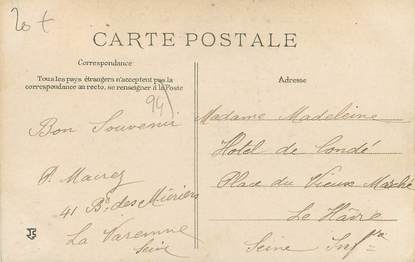 20 +
CARTE POSTALE
Correspondance
Tous les pays étrangers n'acceptent pas la
correspondance au recto, se renseigner à la Poste
94
Bon Souvenir
P. Mairey
41 Bd des Mûriers
La Varenne
Seine
Adresse
Madame Madeleine
Hotel de Condé
Place du Vieux Marché
Le Hâvre
Seine Infre